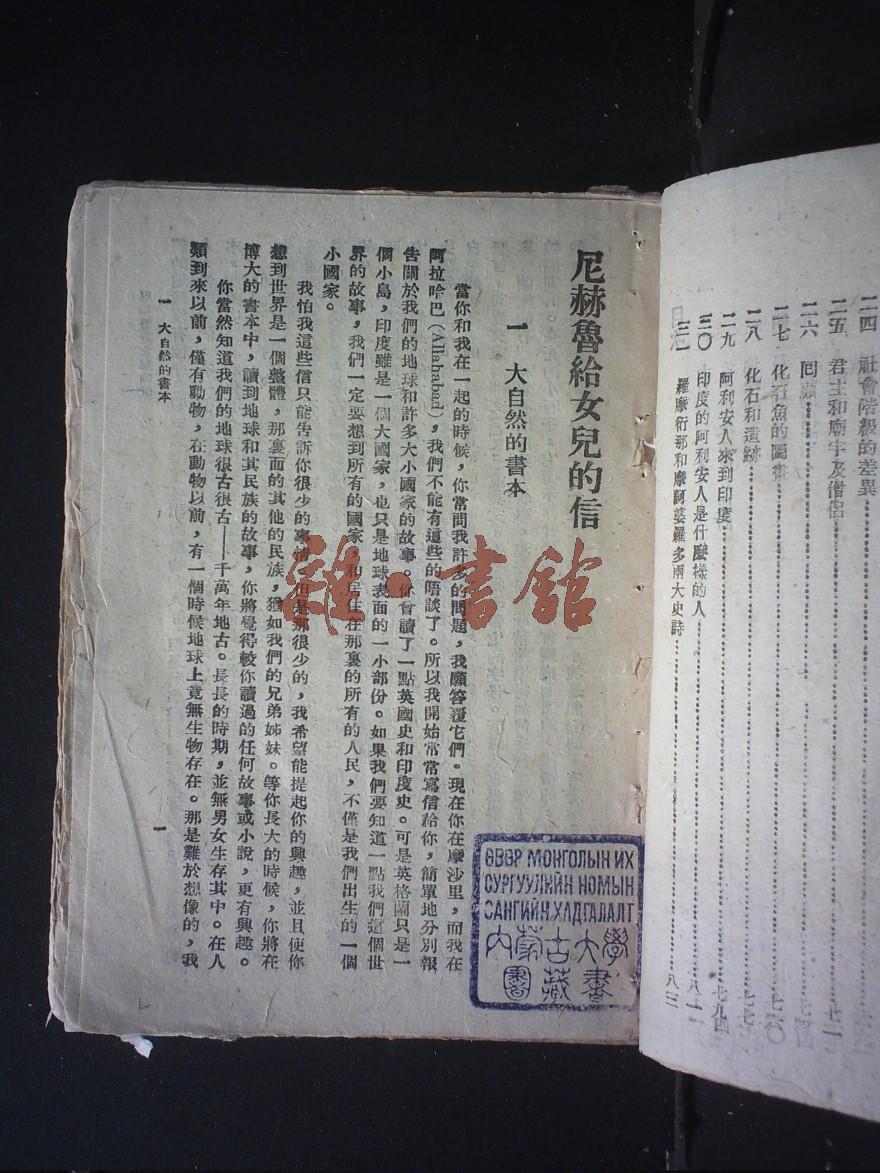 二四 社會階級的差異
二五 君主和廟宇及僧侶
二六 回
二七 化石魚的圖畫
二八 化石和遺跡
二九 阿利安人來到印度
三〇 印度的阿利安人是什麼樣的人
三一 羅摩衍那和摩訶婆羅多兩大史詩 八三
尼赫魯給女兒的信
一 大自然的書本
當你和我在一起的時候，你常問我許多的問題，我願答覆它們。現在你在摩沙里，而我在
阿拉哈巴（Allahabad），我們不能有這些的晤談了。所以我開始常常寫信給你，簡單地分別報
告關於我們的地球和許多大小國家的故事。你曾讀了一點英國史和印度史。可是英格蘭只是一
個小島，印度雖是一個大國家，也只是地球表面的一小部份。如果我們要知道一點我們這個世
界的故事，我們一定要想到所有的國家，和居住在那裏的所有的人民，不僅是我們出生的一個
小國家。
我怕我這些信只能告訴你很少的事情，但是那很少的，我希望能提起你的興趣，並且使你
想到世界是一個整體，那裏面的其他的民族，猶如我們的兄弟姊妹。等你長大的時候，你將在
博大的書本中，讀到地球和其民族的故事，你將覺得較你讀過的任何故事或小說，更有興趣。
你當然知道我們的地球很古很古——千萬年地古。長長的時期，並無男女生存其中。在人
類到來以前，僅有動物，在動物以前，有一個時候地球上竟無生物存在。那是難於想像的，我
一 大自然的書本
一
雜·書館
ӨВӨР МОНГОЛЫН ИХ
СУРГУУЛИЙН НОМЫН
САНГИЙН ХАДГАЛАЛТ
內蒙古大學
圖書藏